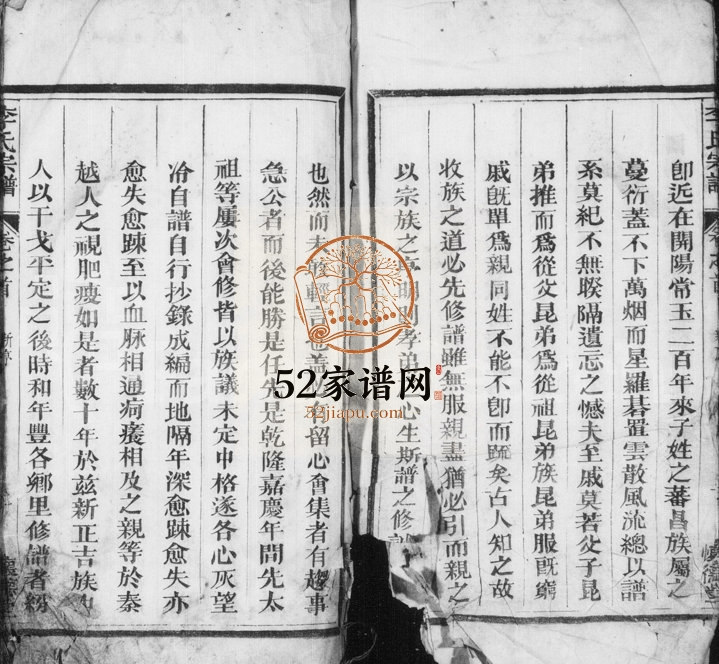 李氏宗譜
即近在開陽常玉二百年來子姓之蕃昌族屬之
蔓衍蓋不下萬烟而星羅碁置雲散風流總以譜
系莫紀不無暌隔遺忘之憾夫至戚莫若父子昆
弟推而爲從父昆弟爲從祖昆弟族昆弟服既窮
戚既單爲親同姓不能不卽而疏矣古人知之故
收族之道必先修譜雖無服親盡猶必引而親之
以宗族之 孝弟 心生斯譜之修
也然而未 輕言也蓋 留心會集者有趨事
急公者而後能勝是任先是乾隆嘉慶年間先太
祖等屢次會修皆以族議未定中格遂各心灰望
冷自譜自行抄錄成編而地隔年深愈踈愈失亦
愈失愈踈至以血脉相通疴癢相及之親等於秦
越人之視肥瘦如是者數十年於茲新正吉族
人以干戈平定之後時和年豐各鄉里修譜者紛
李氏宗譜
卷之首
52家谱网
52jiapu.com